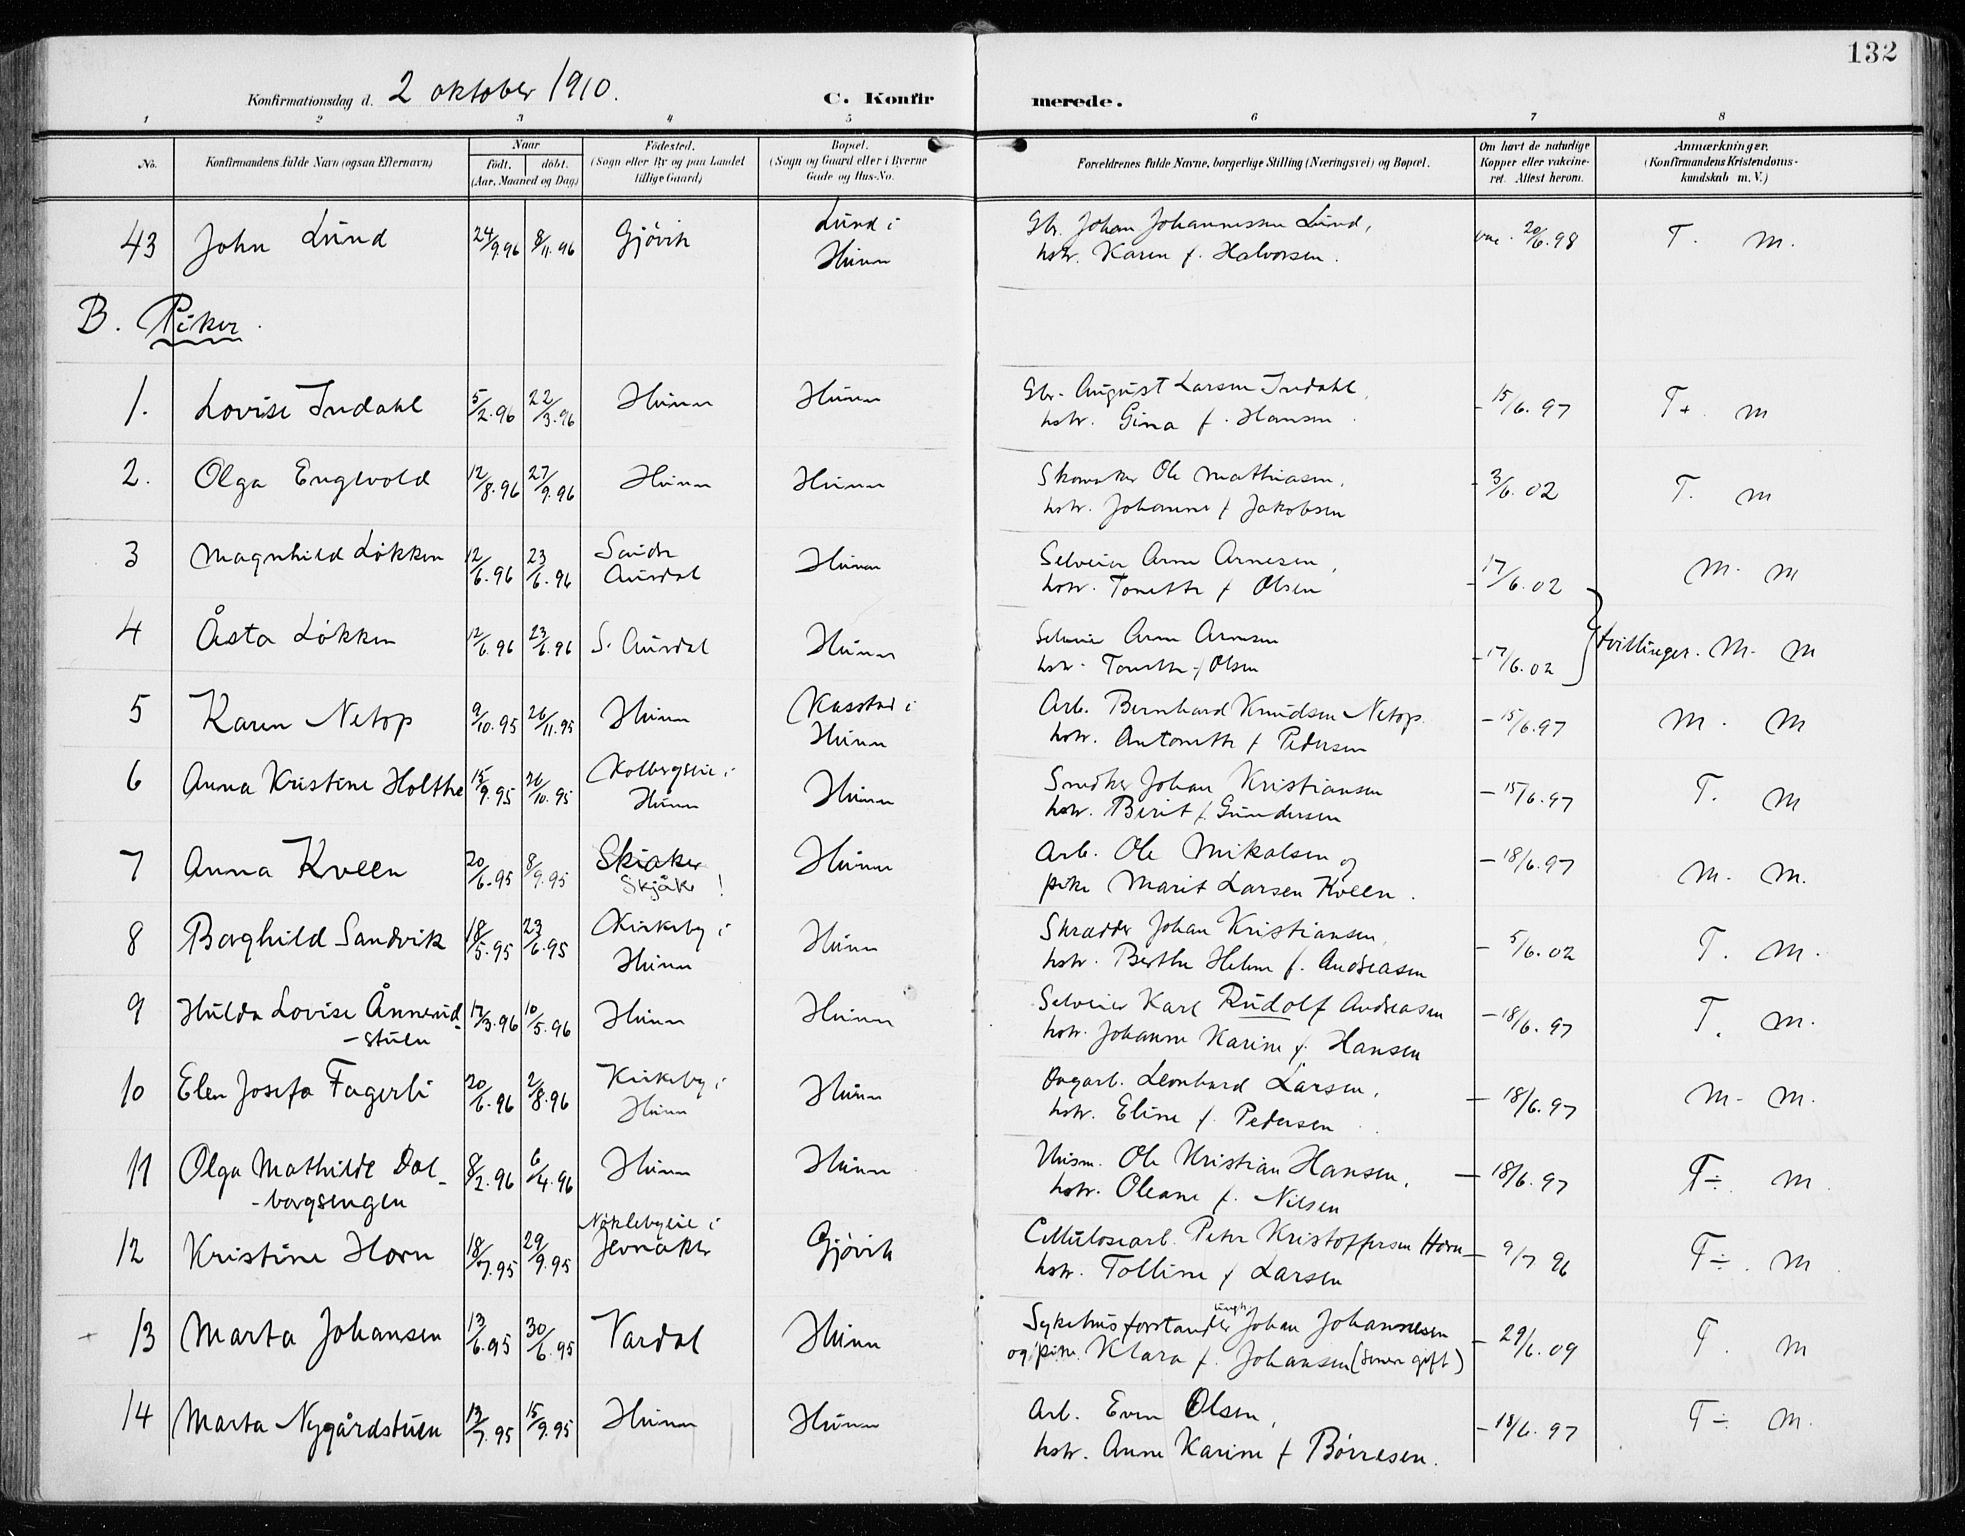 132
Konfirmationsdag d. 2 oktober 1910. C. Konfirmerede.
1 2 3 4 5 6 7 8
No. Konfirmandens fulde Navn (ogsaa Efternavn) Naar født. døbt. (Aar, Maaned og Dag) Fødested. (Sogn eller By og paa Landet tillige Gaard) Bopæl. (Sogn og Gaard eller i Byerne Gade og Hus-No. Forældrenes fulde Navne, borgerlige Stilling (Næringsvei) og Bopæl. Om havt de naturlige Kopper eller vakcineret. Attest herom. Anmærkninger. (Konfirmandens Kristendomskundskab m. V.)
43 John Lund 24/9.96 8/11.96 Gjøvik Lund i Hunn Gbr. Johan Johannessen Lund,
hstr. Karen f. Halvorsen. vac. 20/6.98 T. M.
B. Piker.
1. Lovise Indahl 5/2.96 22/3.96 Hunn Hunn Gbr. August Larsen Indahl,
hstr. Gina f. Hansen. - 15/6.97 T+. M
2. Olga Engevold 12/8.96 27/9.96 Hunn Hunn Skomaker Ole Mathiasen,
hstr. Johanne f Jakobsen - 3/6.02 T. M
3 Magnhild Løkken 12/6.96 23/6.96 Søndre Aurdal Hunn Selveier Arne Arnesen,
hstr. Tonette f Olsen - 17/6.02 M. M
4 Åsta Løkken 12/6.96 23/6.96 S. Aurdal Hunn Selveier Arne Arnesen
hstr. Tonette f Olsen - 17/6.02 tvillinger. M. M
5 Karen Netop 9/10.95 26/11.95 Hunn Kasstad i Hunn Arb. Bernhard Knudsen Netop.
hstr. Antonette f Pedersen - 15/6.97 M. M
6 Anna Kristine Holthe 15/9.95 26/10.95 Kolbergseie i Hunn Hunn Snedker Johan Kristiansen
hstr. Birit f. Gundersen - 15/6.97 T. M
7 Anna Kveen 20/6.95 8/9.95 Skiaker
Skjåk! Hunn Arb. Ole Mikalsen og
pike Marit Larsen Kveen. - 18/6.97 M. M.
8 Borghild Sandvik 18/5.95 23/6.95 Kirkeby i Hunn Hunn Skrædder Johan Kristiansen,
hstr. Berthe Helene f. Andreasen - 5/6.02 T. M.
9 Hulda Lovise Ånnerud-
-stuen 17/3.96 10/5.96 Hunn Hunn Selveier Karl Rudolf Andreasen
hstr. Johanne Karine f. Hansen - 18/6.97 T. M.
10 Elen Josefa Fagerli 20/6.96 2/8.96 Kirkeby i Hunn Hunn Dagarb. Leonhard Larsen,
hstr. Eline f. Pedersen - 18/6.97 M. M.
11 Olga Mathilde Dal-
-borgsengen 8/2.96 6/4.96 Hunn Hunn Husm. Ole Kristian Hansen,
hstr. Oleane f. Nilsen - 18/6.97 T÷. M.
12 Kristine Horn 18/7.95 29/9.95 Nøklebyeie i Jevnaker Gjøvik Cellulosearb. Peter Kristoffersen Horn
hstr. Tolline f Larsen - 9/7 96 T÷. M.
13 Marta Johansen 13/6.95 30/6.95 Vardal Hunn Sykehusforstander ungk. Johan Johannesen
og pike. Klara f. Johansen (senere gift) - 29/6.09 T. M
14 Marta Nygårdstuen 13/7.95 15/9.95 Hunn Hunn Arb. Even Olsen,
hstr. Anne Karine f Børresen. - 18/6.97 T÷. M.